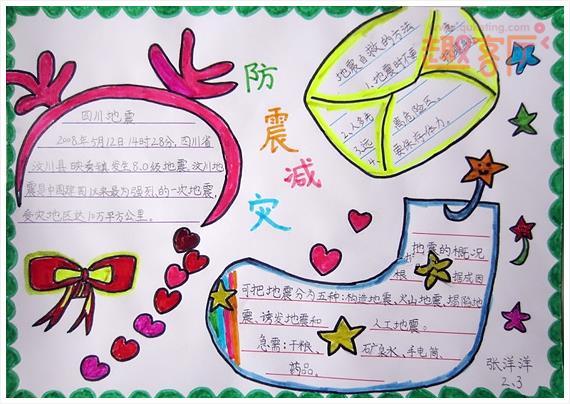 防震减灾
四川地震
2008年5月12日14时28分,四川省
汶川县映秀镇发生8.0级地震,汶川地
震是中国建国以来最为强烈的一次地震,
受灾地区达10万平方公里。
地震自救的方法
1.地震时不要
2.人多先
离危险区。
3.远
4.
要保存体力。
地震的概况
根据成因
可把地震分为五种:构造地震、火山地震、塌陷地
震、诱发地震和人工地震。
急需:干粮、矿泉水、手电筒、
药品。
张洋洋
2、3
趣客网